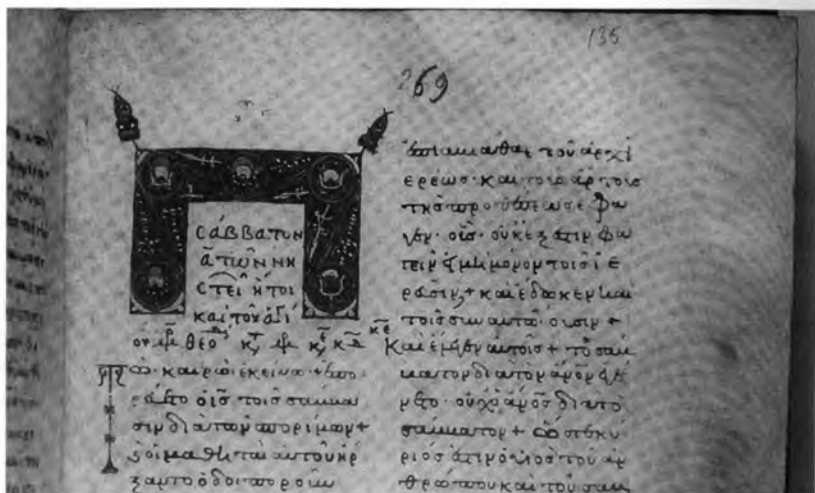 135
269
σάββατον
ᾱ τῶν νη
στει ἤτοι
καὶ τοῦ ἁγί
ου θεο
Τῶ καιρῶ ἐκείνω + ἐπο
ρεύετο ὁ ις τοῖς σάββα
σιν διὰ τῶν σπορίμων +
ϗ οἱ μαθηταὶ αὐτοῦ ἤρ
ξαντο ὁδοιπορεῖν
ἐπὶ ἀβιάθαρ τοῦ ἀρχι
ερέως· καὶ τοὺς ἄρτους
τῆς προθέσεως ἔφα
γεν· οὓς οὐκ ἔξεστιν φα
γεῖν εἰ μὴ μόνον τοῖς ἱε
ρεῦσιν + καὶ ἔδωκεν καὶ
τοῖς σὺν αὐτῶ οὖσιν +
Καὶ ἔλεγεν αὐτοῖς + τὸ σάβ
βατον διὰ τὸν ἄνον ἐγέ
νετο· οὐχ ὁ ἄνος διὰ τὸ
σάββατον + ὥστε κύ
ριός ἐστιν ὁ υἱὸς τοῦ ἀν
θρώπου καὶ τοῦ σαβ